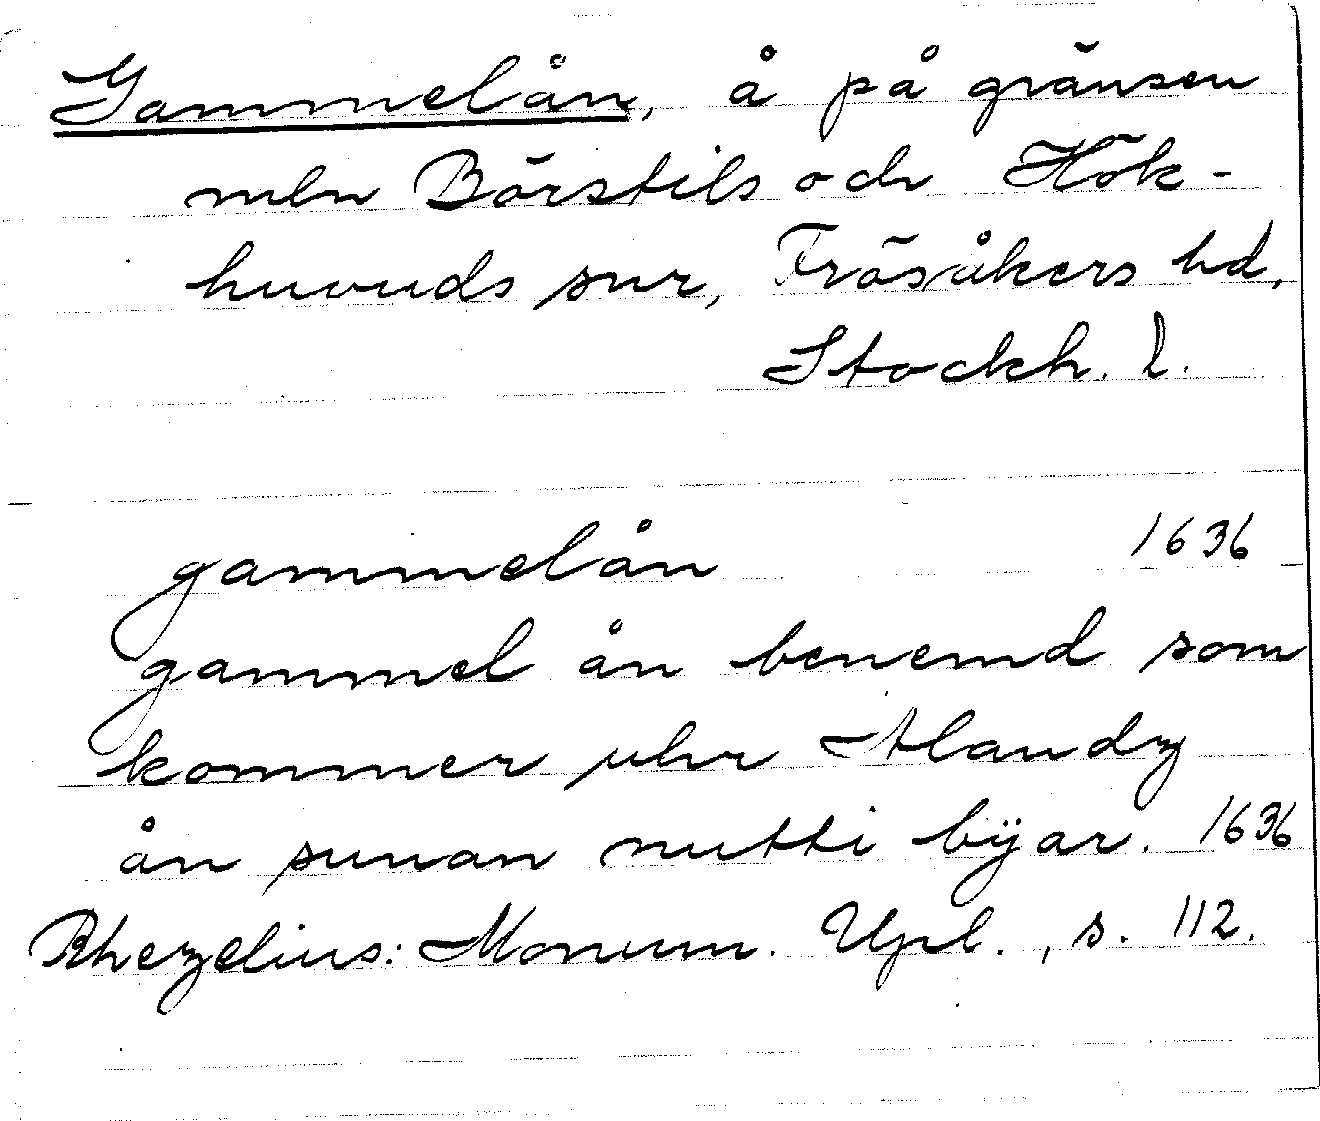 Gammelån, å på gränsen
mln Börstils och Hök-
huvuds snr, Frösåkers hd,
Stockh. l.
gammelån 1636
gammel ån benemd som
kommer uhr Alandz
ån sunan nutti byar. 1636
Rhezelius: Monum. Upl., s. 112.